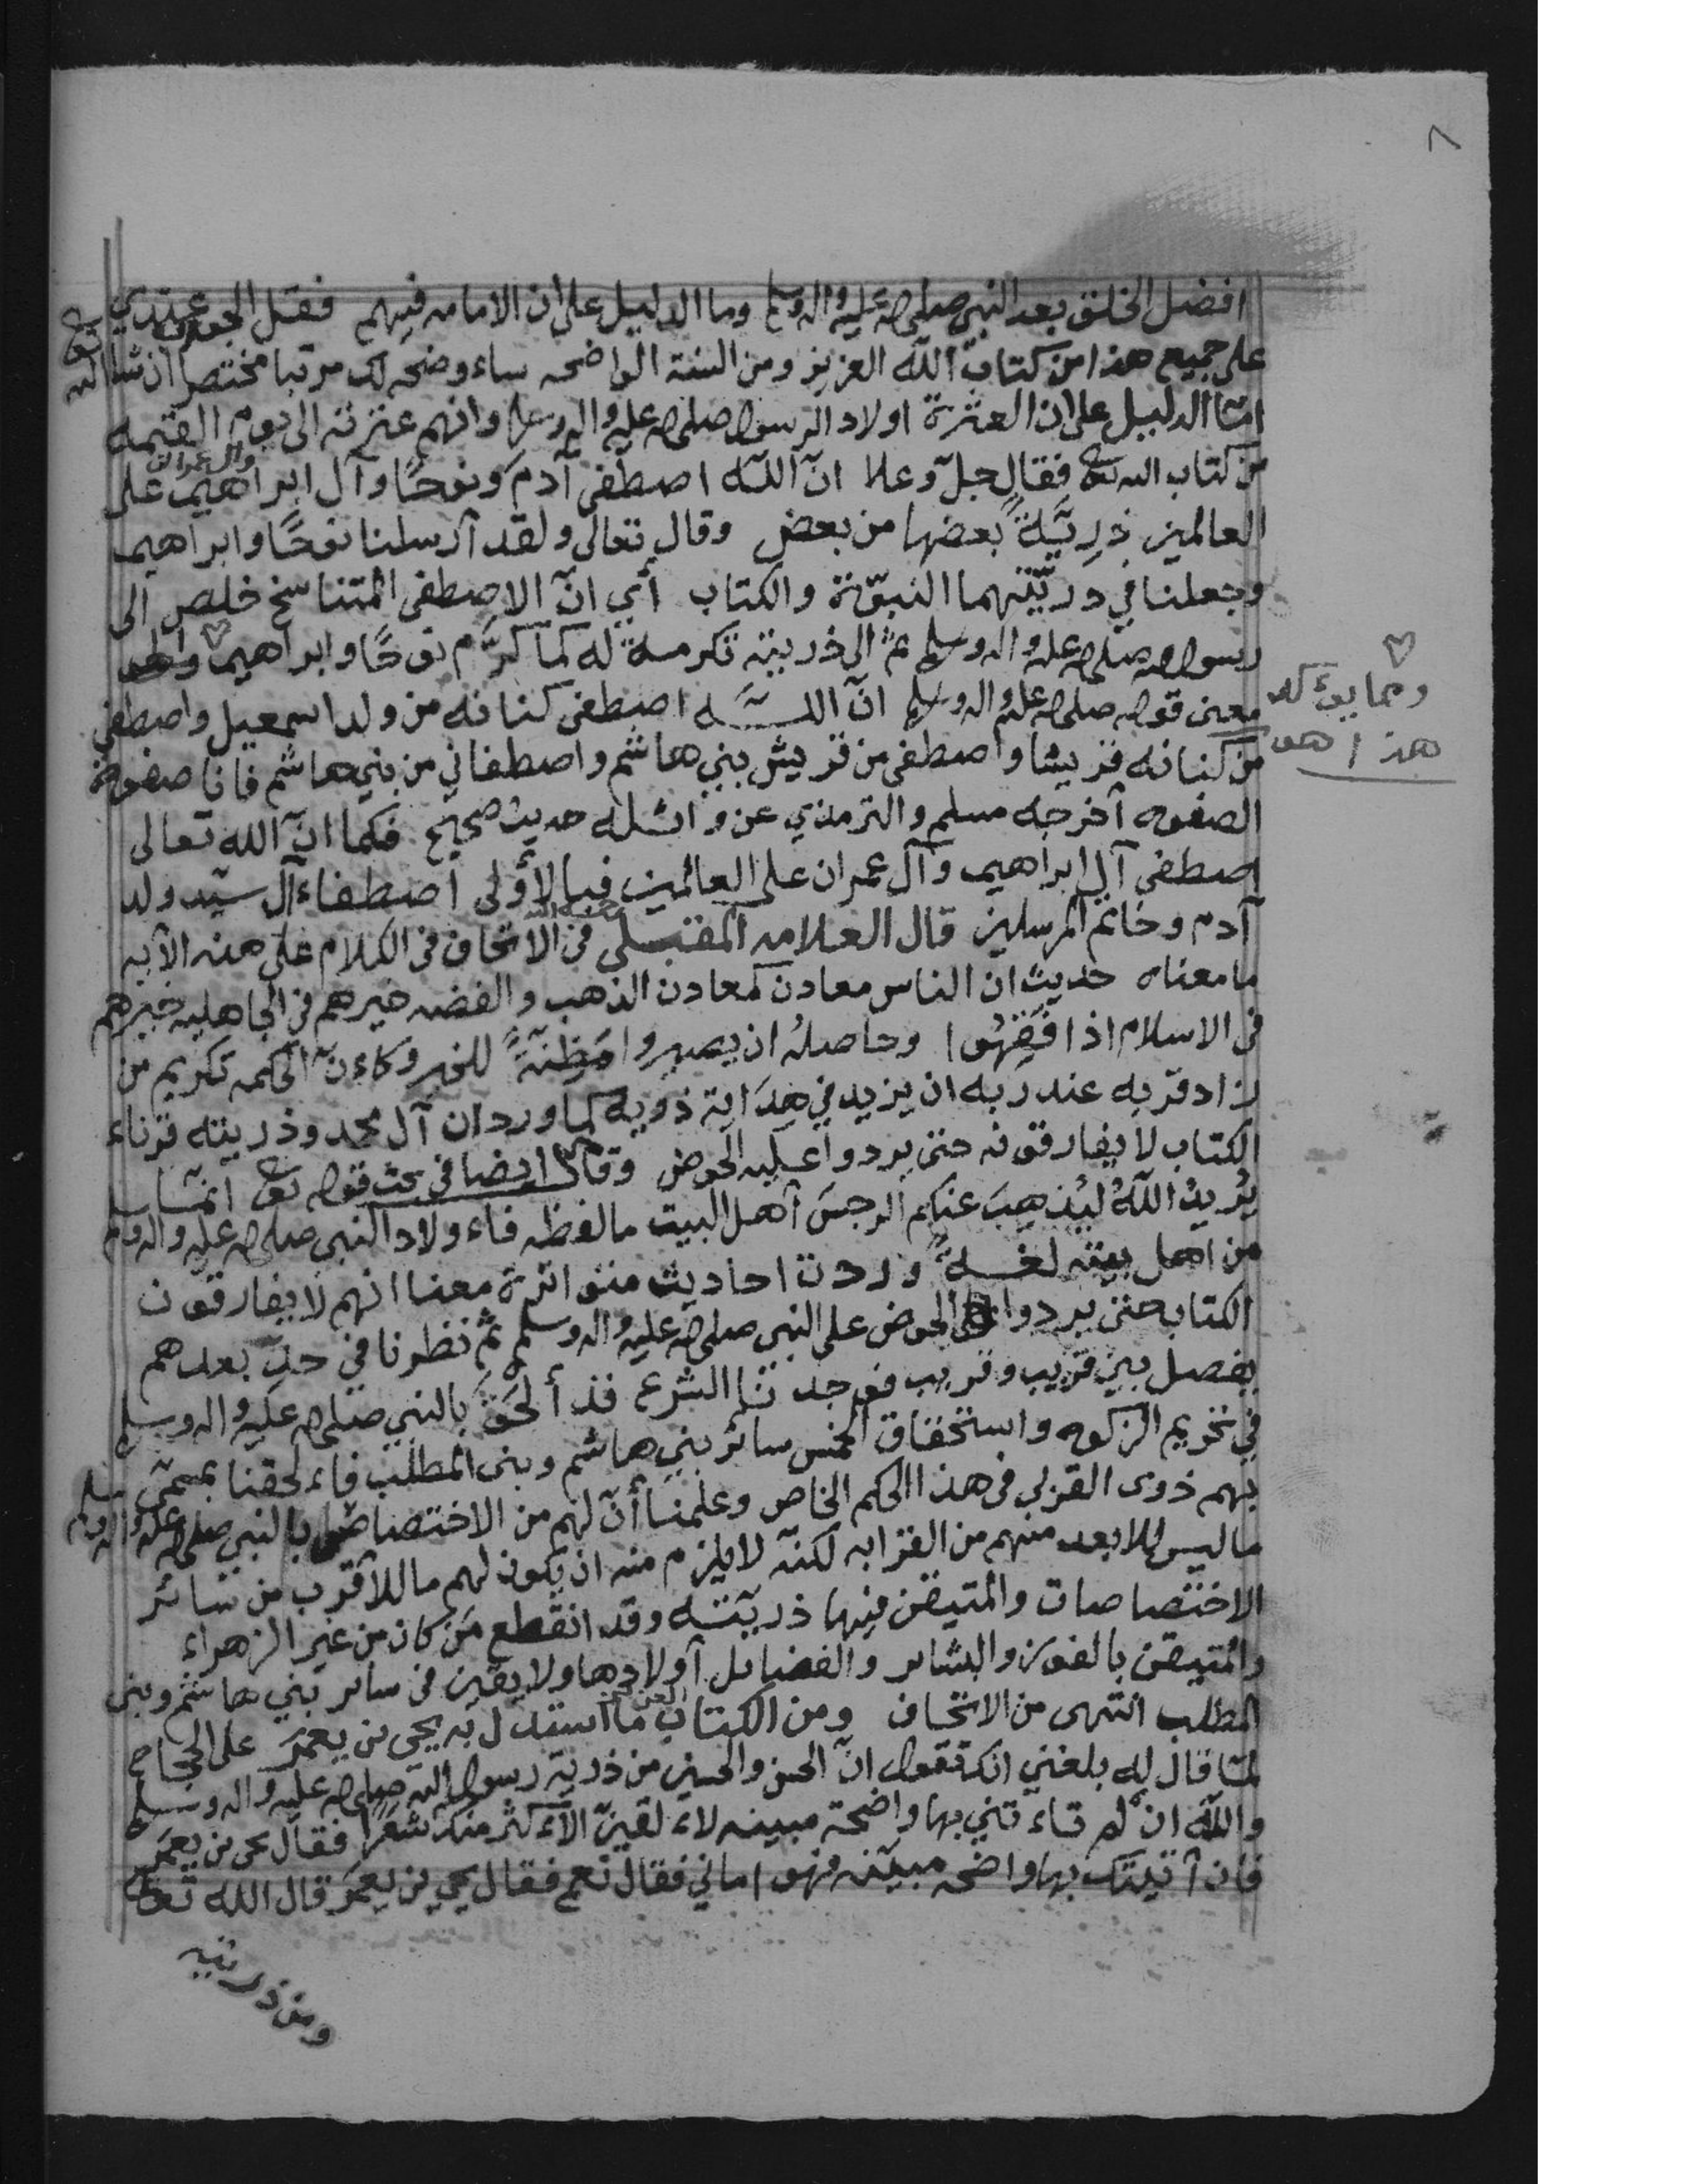 ٨
افضل الخلق بعد النبي صلى الله عليه واله وسلم وما الدليل على ان الامامه فيهم فقل الجواب عندي
على جميع هذا من كتاب الله العزيز ومن السنة الواضحه ساء وضحه لك مرتبا مختصرا ان شا الله تع
امّا الدليل على ان العترة اولاد الرسول صلى الله عليه واله وسلم وانهم عترته الى يوم القيمه
من كتاب الله تع فقال جلّ وعلا انّ الله اصطفى آدم ونوحًا وآل ابراهيم وآل عمران على
العالمين ذريّةً بعضها من بعض وقال تعالى ولقد أرسلنا نوحًا وابراهيم
وجعلنا في ذريّتهما النبوّة والكتاب أي انّ الاصطفى المتناسخ خلص الى
رسول الله صلى الله عليه واله وسلم ثم الى ذريته تكرمة له كما كرّم نوحًا وابراهيم
ومما يوءكد
هذا هو
معنى قوله صلى الله عليه واله وسلم انّ الله اصطفى كنانه من ولد اسمعيل واصطفى
من كنانه قريشا واصطفى من قريش بني هاشم واصطفاني من بني هاشم فانا صفوة
الصفوه أخرجه مسلم والترمذي عن واثله حديث صحيح فكما انّ الله تعالى
اصطفى آل ابراهيم وآل عمران على العالمين فبالأولى اصطفاء آل سيّد ولد
آدم وخاتم المرسلين قال العلامه المقبلي رحمه الله في الاتحاف في الكلام على هذه الآيه
ما معناه حديث ان الناس معادن كمعادن الذهب والفضه خيرهم في الجاهليه خيرهم
في الاسلام اذا فَقِهُوا وحاصلهُ ان يصيروا مَظِنّةً للخير وكاءنّ الحكمه تكريم من
زاد قربه عند ربه ان يزيد في هِدَاية ذويه كما ورد ان آل محمد وذريته قرناء
الكتاب لا يفارقونه حتى يردوا عليه الحوض وقال ايضا في بحث قوله تع انما
يُريدُ اللهُ ليُذهِبَ عنكم الرجسَ أهل البيت مالفظه فاء ولاد النبي صلى الله عليه واله وسلم
من اهل بيته لغــةً وردت احاديث متواترة معنا انهم لا يفارقون
الكتاب حتى يردوا الحوض على النبي صلى الله عليه واله وسلم ثم نظرنا في حدّ بعدهم
يفصل بين قريب وقريب فوجدنا الشرع قد أَلحَقَ بالنبي صلى الله عليه واله وسلم
في تحريم الزكوه واستحقاق الخمس سائر بني هاشم وبنى المطلب فاء لحقنا بمسمّى
بهم ذوى القربى في هذا الحكم الخاص وعلمنا أنّ لهم من الاختصاص بالنبي صلى الله عليه واله وسلم
ما ليس للابعد منهم من القرابه لكنّه لا يلزم منه ان يكون لهم ما للأقرب من سائر
الاختصاصات والمتيقن فيها ذريّته وقد انقطع مَن كان من غير الزهراء
والمتيقن بالفوز والبشاير والفضايل أولادها ولا يقين في ساير بني هاشم وبنى
المطلب انتهى من الاتحاف ومن الكتاب العزيز ما استدل به يحي بن يعمرَ على الحجاج
لمّا قال له بلغني انك تقول انّ الحسن والحسين من ذرية رسول الله صلى الله عليه واله وسلم
والله ان لم تاء تني بها واضحة مبينه لاء لقينّ الأء كثر منك شعرًا فقال يحي بن يعمَر
فان أتيتك بها واضحه مبيّنه فهو اماني فقال نعم فقال يحي بن يعمَر قال الله تعالى
ومن ذريته